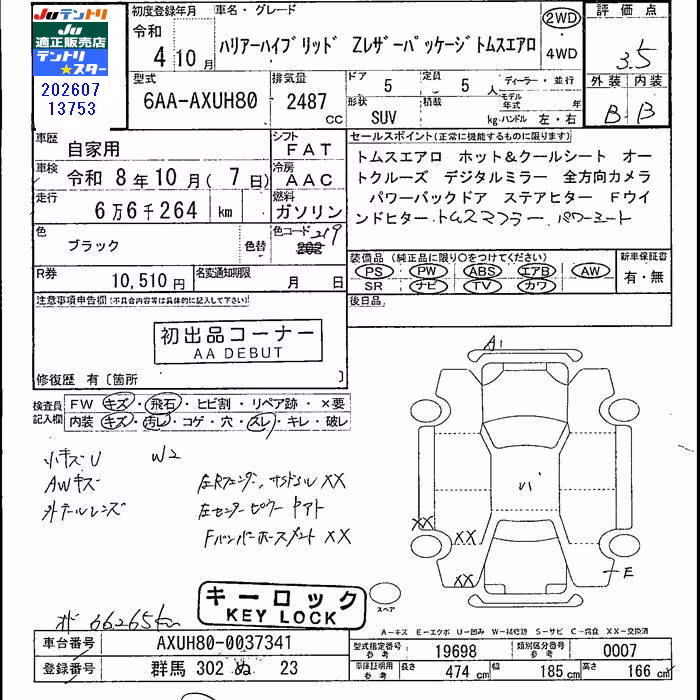 Juテントリ
Ju
適正販売店
テントリ
★スター
202607
13753
初度登録年月
令和
4年10月
車名・グレード
ハリアーハイブリッド Zレザーパッケージトムスエアロ
2WD
4WD
評価点
3.5
外装 内装
B B
型式
6AA-AXUH80
排気量
2487
CC
ドア
5
定員
5人
ディーラー・並行
形状
SUV
積載
kg
モデル年式 年
ハンドル 左・右
車歴
自家用
シフト
FAT
車検
令和 8年10月(7日)
冷房
AAC
走行
6万6千264 km
燃料
ガソリン
色
ブラック
色替
色コード
219
202
R券
10,510円
名変通知期限
月 日
セールスポイント(正常に機能するものに限ります)
トムスエアロ ホット&クールシート オー
トクルーズ デジタルミラー 全方向カメラ
パワーバックドア ステアヒター Fウイ
ンドヒター.トムスマフラー.パワーシート
装備品(純正品に限り○をつけてください)
PS PW ABS エアB AW
SR ナビ TV カワ
新車保証書
有・無
後日品
注意事項申告欄(不具合内容等は具体的に記入して下さい)
初出品コーナー
AA DEBUT
修復歴 有〔箇所 〕
検査員記入欄
FW キズ・飛石・ヒビ割・リペア跡・×要
内装 キズ・汚レ・コゲ・穴・スレ・キレ・破レ
小キズU W2
AWキズ
外テールレンズ
左Rフェンダー,サイドシル XX
左センターピラー アト
Fバンパーホースメント XX
A1
U'
XX
XX
XX
E
スペア
キーロック
KEY LOCK
66265km
A-キズ E-エクボ U-凹み W-補修跡 S-サビ C-腐食 XX-交換済
車台番号
AXUH80-0037341
登録番号
群馬 302 ぬ 23
型式指定番号
参考
19698
類別区分番号
参考
0007
車庫証明用
参考
長さ
474 cm
幅
185 cm
高さ
166 cm